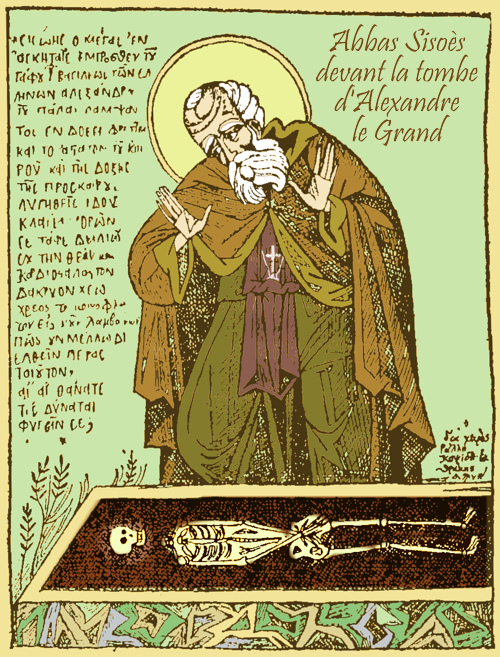 Abbas Sisoès
devant la tombe
d'Alexandre
le Grand
ΣΙΣΩΗΣ Ο ΜΕΓΑΣ ἘΝ
ἈΣΚΗΤΑΙΣ ΕΜΠΡΟΣΘΕΝ ΤΟΥ
ΤΑΦΟΥ ΒΑΣΙΛΕΩΣ ΤΩΝ ΕΛ
ΛΗΝΩΝ ΑΛΕΞΑΝΔΡΟΥ
ΤΟΥ ΠΑΛΑΙ ΛΑΜΨΑΝ
ΤΟΣ ΕΝ ΔΟΞΗ ΦΡΙΤΤΕΙ
ΚΑΙ ΤΟ ΑΣΤΑΤΟΝ ΤΟΥ ΚΑΙ
ΡΟΥ ΚΑΙ ΤΗΣ ΔΟΞΗΣ
ΤΗΣ ΠΡΟΣΚΑΙΡΟΥ
ΛΥΠΗΘΕΙΣ ΙΔΟΥ
ΚΛΑΙΕΙ· ὉΡΩΝ
ΣΕ ΤΑΦΕ ΔΕΙΛΙΩ
ΣΟΥ ΤΗΝ ΘΕΑΝ ΚΑΙ
ΚΑΡΔΙΟΣΤΑΛΑΚΤΟΝ
ΔΑΚΡΥΟΝ ΧΕΩ
ΧΡΕΟΣ ΤΟ ΚΟΙΝΟΦΛΗ
ΤΟΝ ΕΙΣ ΝΟΥΝ ΛΑΜΒΑΝΩΝ
ΠΩΣ ΟΥΝ ΜΕΛΛΩ ΔΙ
ΕΛΘΕΙΝ ΠΕΡΑΣ
ΤΟΙΟΥΤΟΝ,
ΑΙ ΑΙ ΘΑΝΑΤΕ
ΤΙΣ ΔΥΝΑΤΑΙ
ΦΥΓΕΙΝ ΣΕ;
διὰ χειρὸς